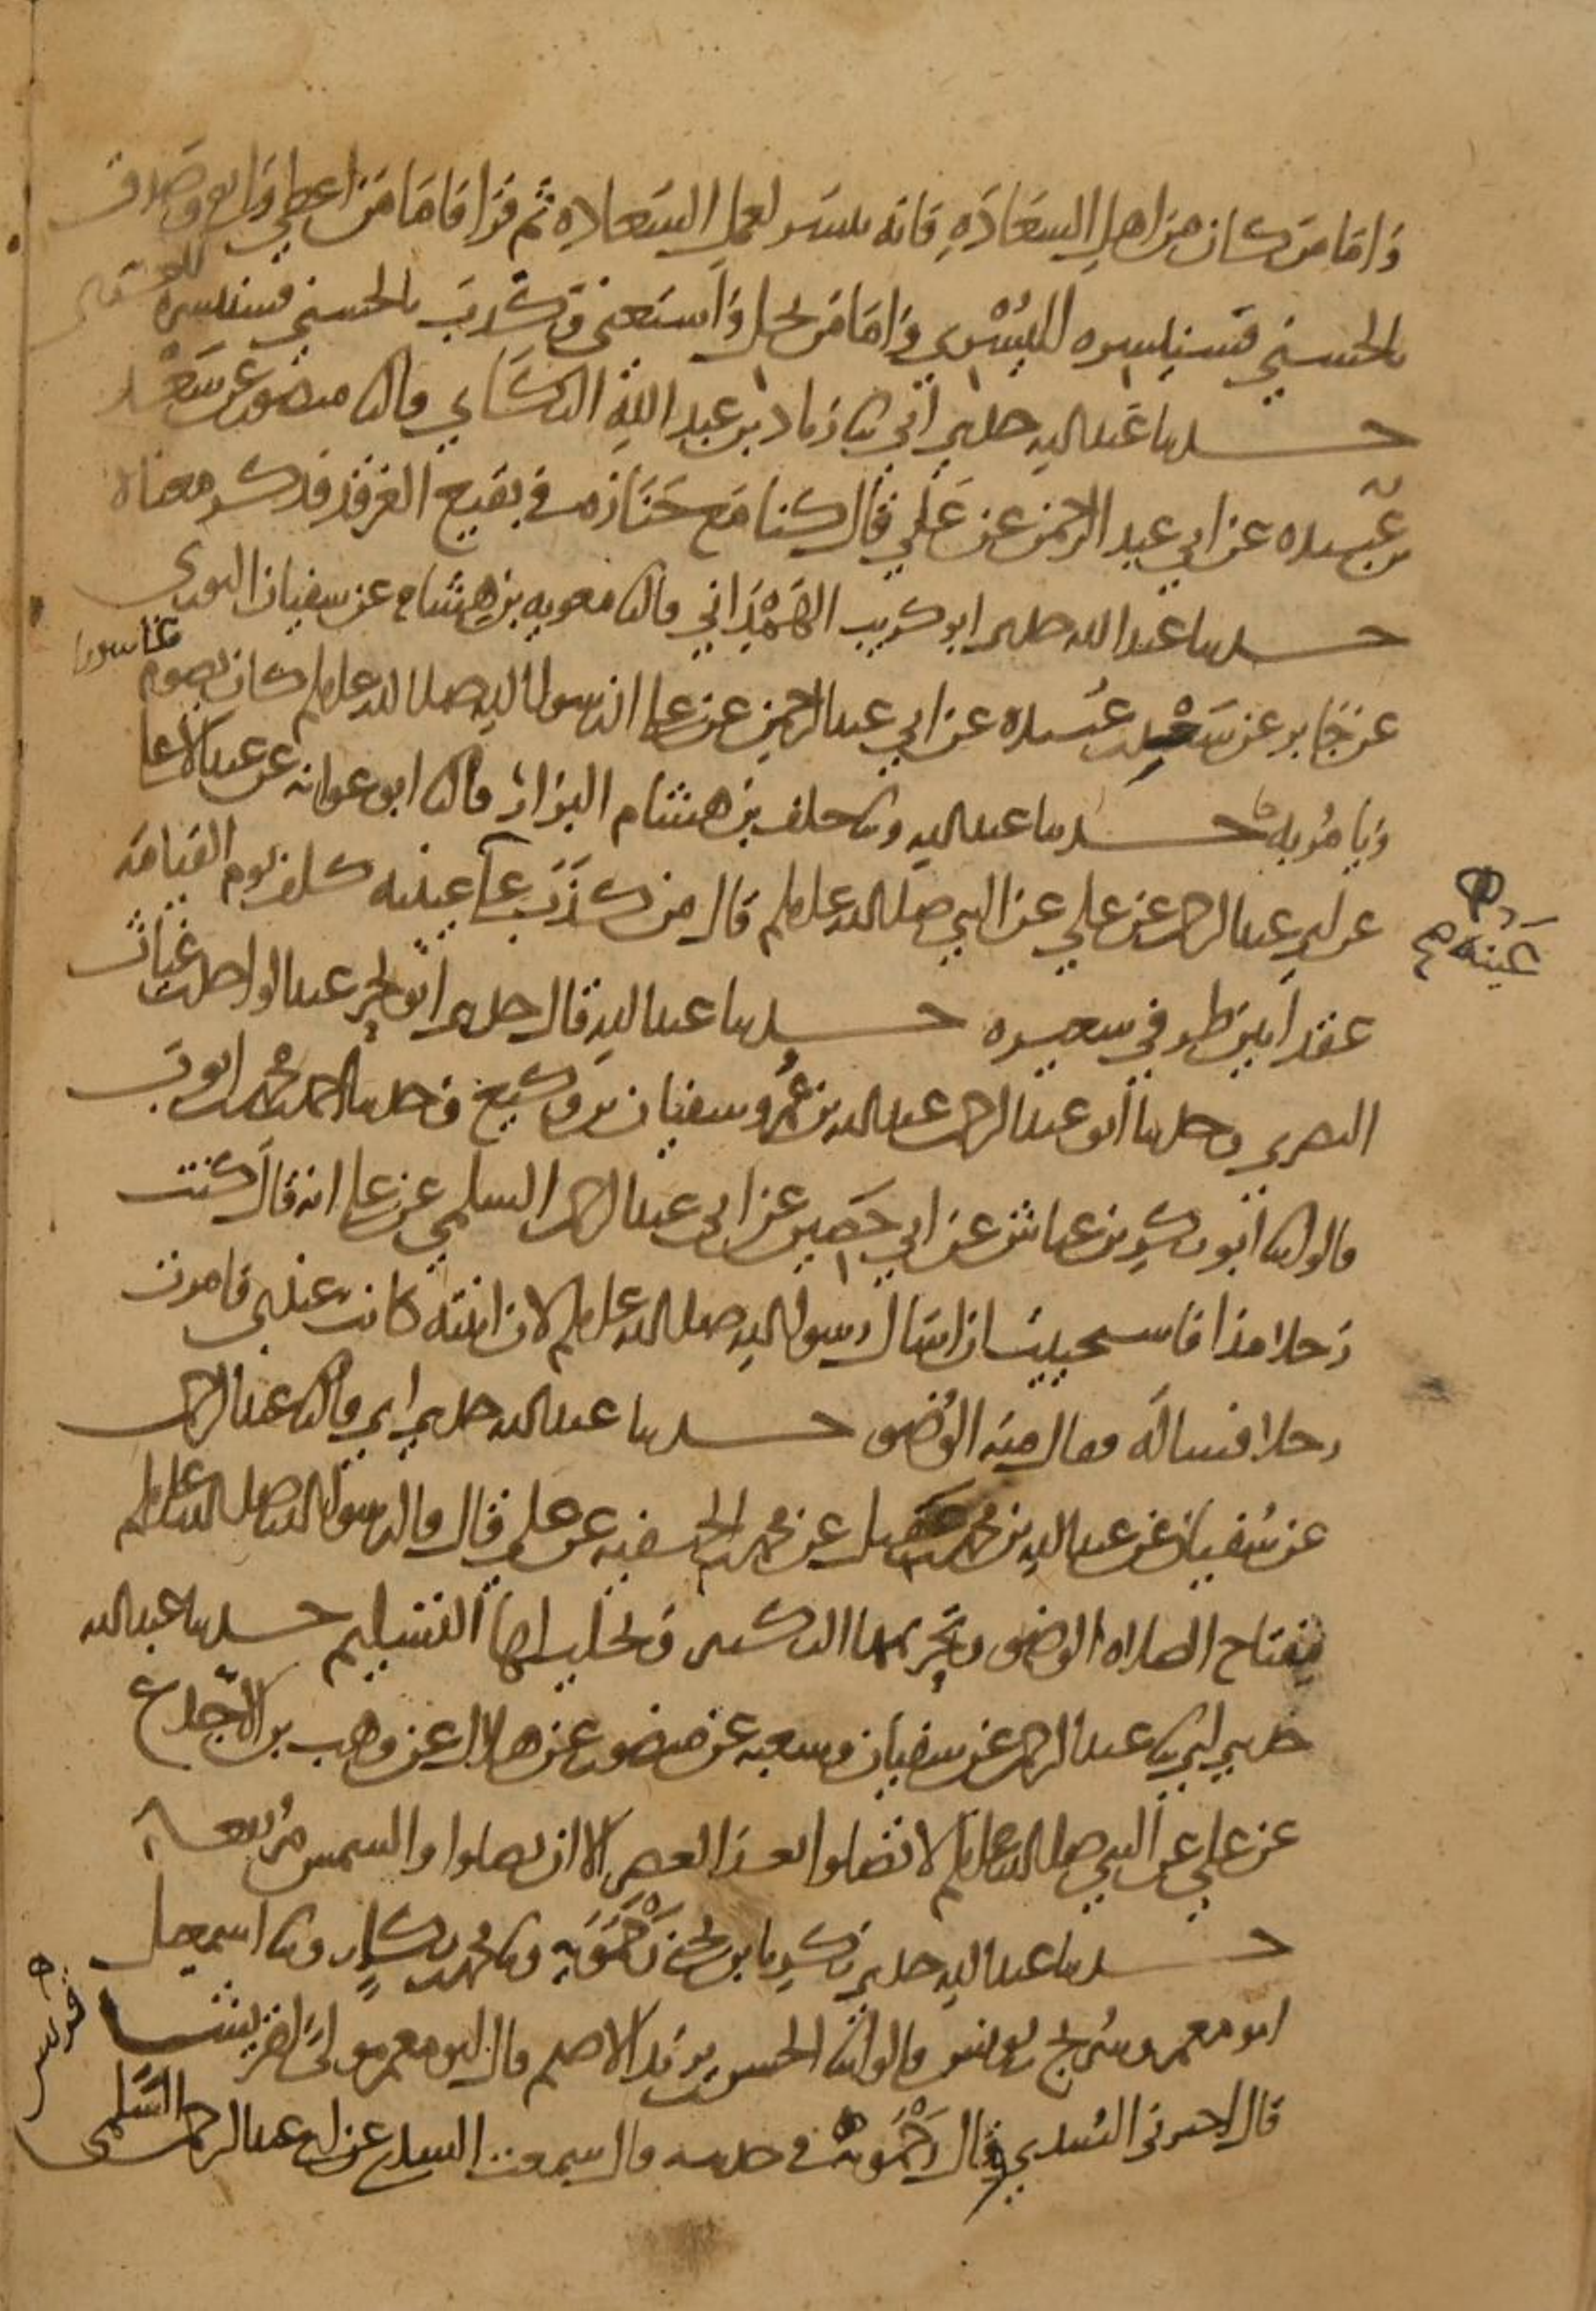 وَامّا مَن كان مِن اهلِ السعَادَةِ فانه ييسَر لعملِ السَعاده ثم قرَا فامّا مَن اعطى واتقى وصَدق
بالحسنى فسنيسره لليُسْرى وَامّا مَن بخل وَاستغنى وكَذبَ بالحسنى فسنيسره للعسرى
حدثنا عَبد الله حدثني ابي ثنا زياد بن عبد اللهِ البكَّاي قال ثنا منصور عن سَعْد
بن عُبيده عن ابي عبد الرحمن عن عَلي قال كنا مَع جَنَازة في بقيع الغرقد فذكر معناه
حدثنا عبد الله حدثني ابو كريب الهَمْدَاني قال ثنا معويه بن هشام عن سفيان الثورى
عن جَابر عن سَعْد بن عُبيده عن ابي عبد الرحمن عن علي ان رسول الله صلى الله عليه وسلم كان يصوم عاشورا
وَيامُر به حدثنا عبد الله وثنا خلف بن هشام البزار قال ثنا ابو عوانه عن عبد الاعلى
عن ابي عبد الرحمن عن علي عن النبي صلى الله عليه وسلم قال من كذَبَ على عينيه كلف يوم القيامَه
عينه صح
عقدا بين طرفي شعيره حدثنا عبد الله قال حدثني ابو بحر عبد الواحد بن غياث
البصري وحدثنا ابو عبد الرحمن عبد الله بن عُمر وسفيان بن وكيع وحدثنا احمد بن محمد بن ايوب
قالوا ثنا ابو بكر بن عياش عن ابي حَصِين عن ابي عبد الرحمن السلمي عن علي انه قال كنت
رَجلا مذا فاستحييت ان اسَال رسول الله صلى الله عليه وسلم لان ابنته كانت عندي فامرت
رجلا فسالَه فقال منه الوُضو حدثنا عبد الله حدثني ابي قال ثنا عبد الرحمن
عن سُفيان عن عبد الله بن محمد بن عَقيل عن محمد بن الحنفيه عن علي قال قال رسول الله صلى الله عليه وسلم
مِفتاح الصلاه الوضو وتحريمها التكبير وتحليلها التسليم حدثنا عبد الله
حدثني ابي ثنا عبد الرحمن عن سفيان وشعبه عن منصور عن هلال عن وهب بن الاجْدع
عن علي عن النبي صلى الله عليه وسلم لا تصلوا بعد العصر الا ان تصلوا والشمس مُرتفعه
حدثنا عبد الله حدثني زكريا بن يحيى زَحْمَوَيه وثنا محمد بن بكار وثنا اسمعيل
ابو معمر وسُريج بن يونس قالوا ثنا الحسن بن يزيد الاصم قال ابو معمر مولى قريش
قال اخبرني السُدي وقال زَحْمَوَيه في حديثه قال سمعت السدي عن ابي عبد الرحمن السُلمي